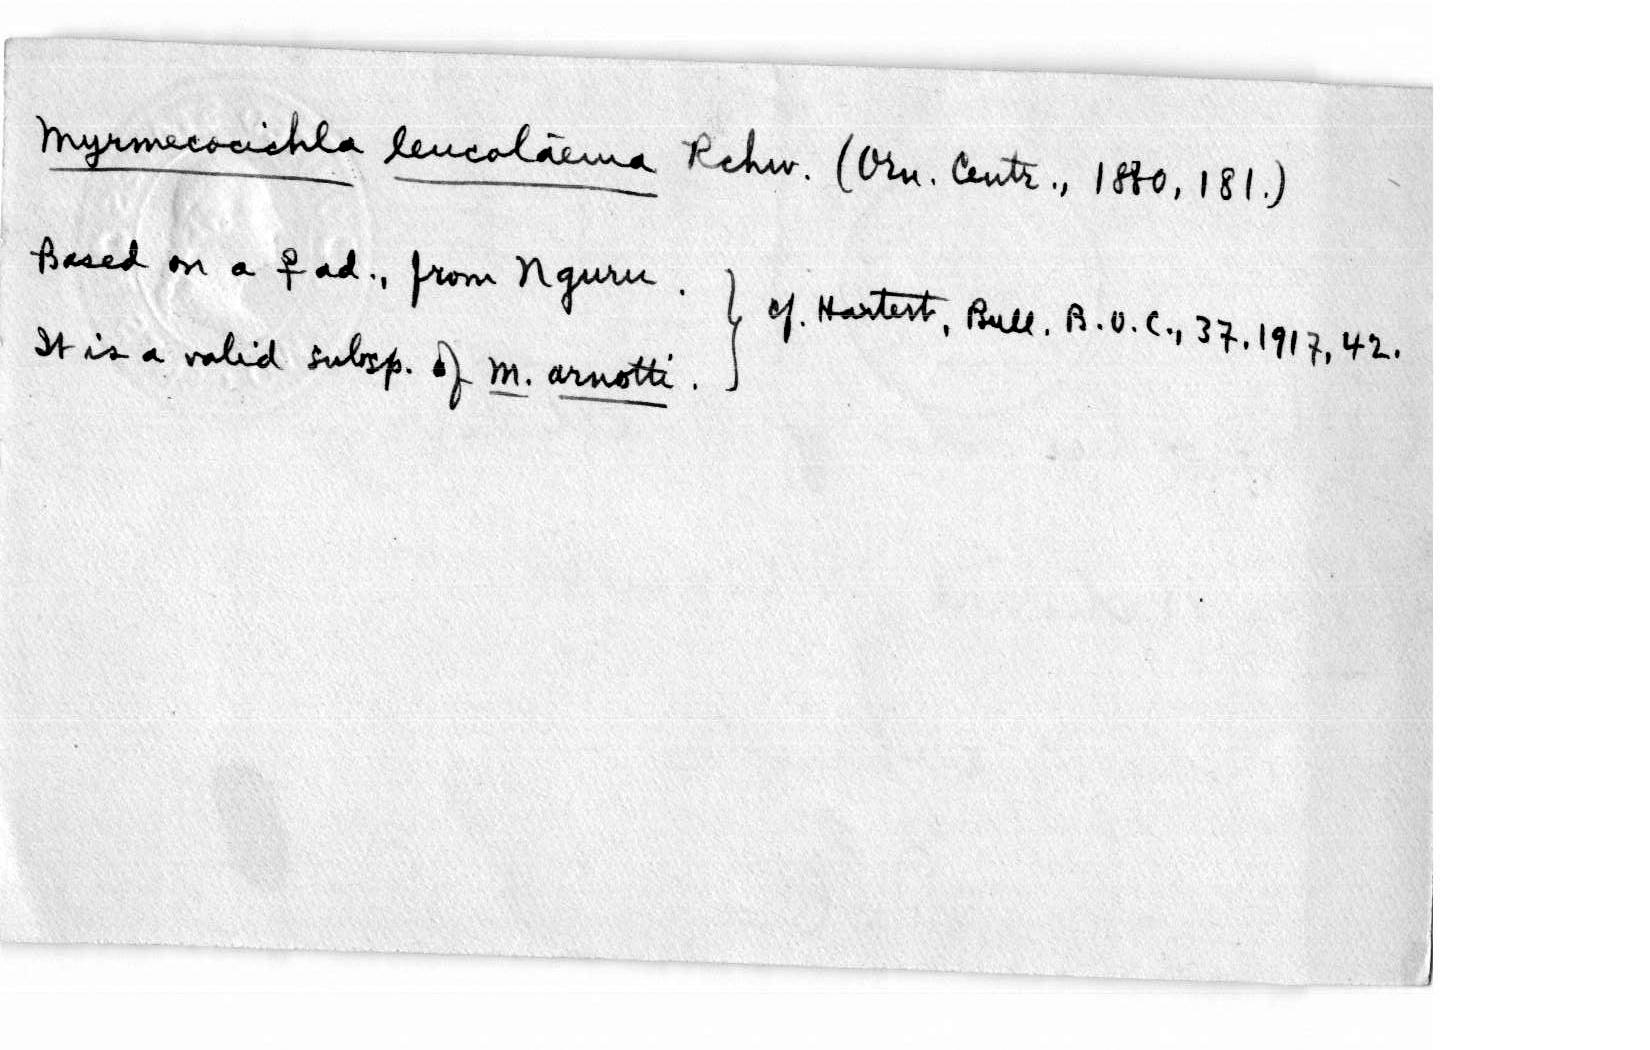 Myrmecocichla leucolāema Rchw. (Orn. Centr., 1880, 181.)
Based on a ♀ ad., from Nguru. } cf. Hartert, Bull. B.O.C., 37, 1917, 42.
It is a valid subsp. of M. arnotti.